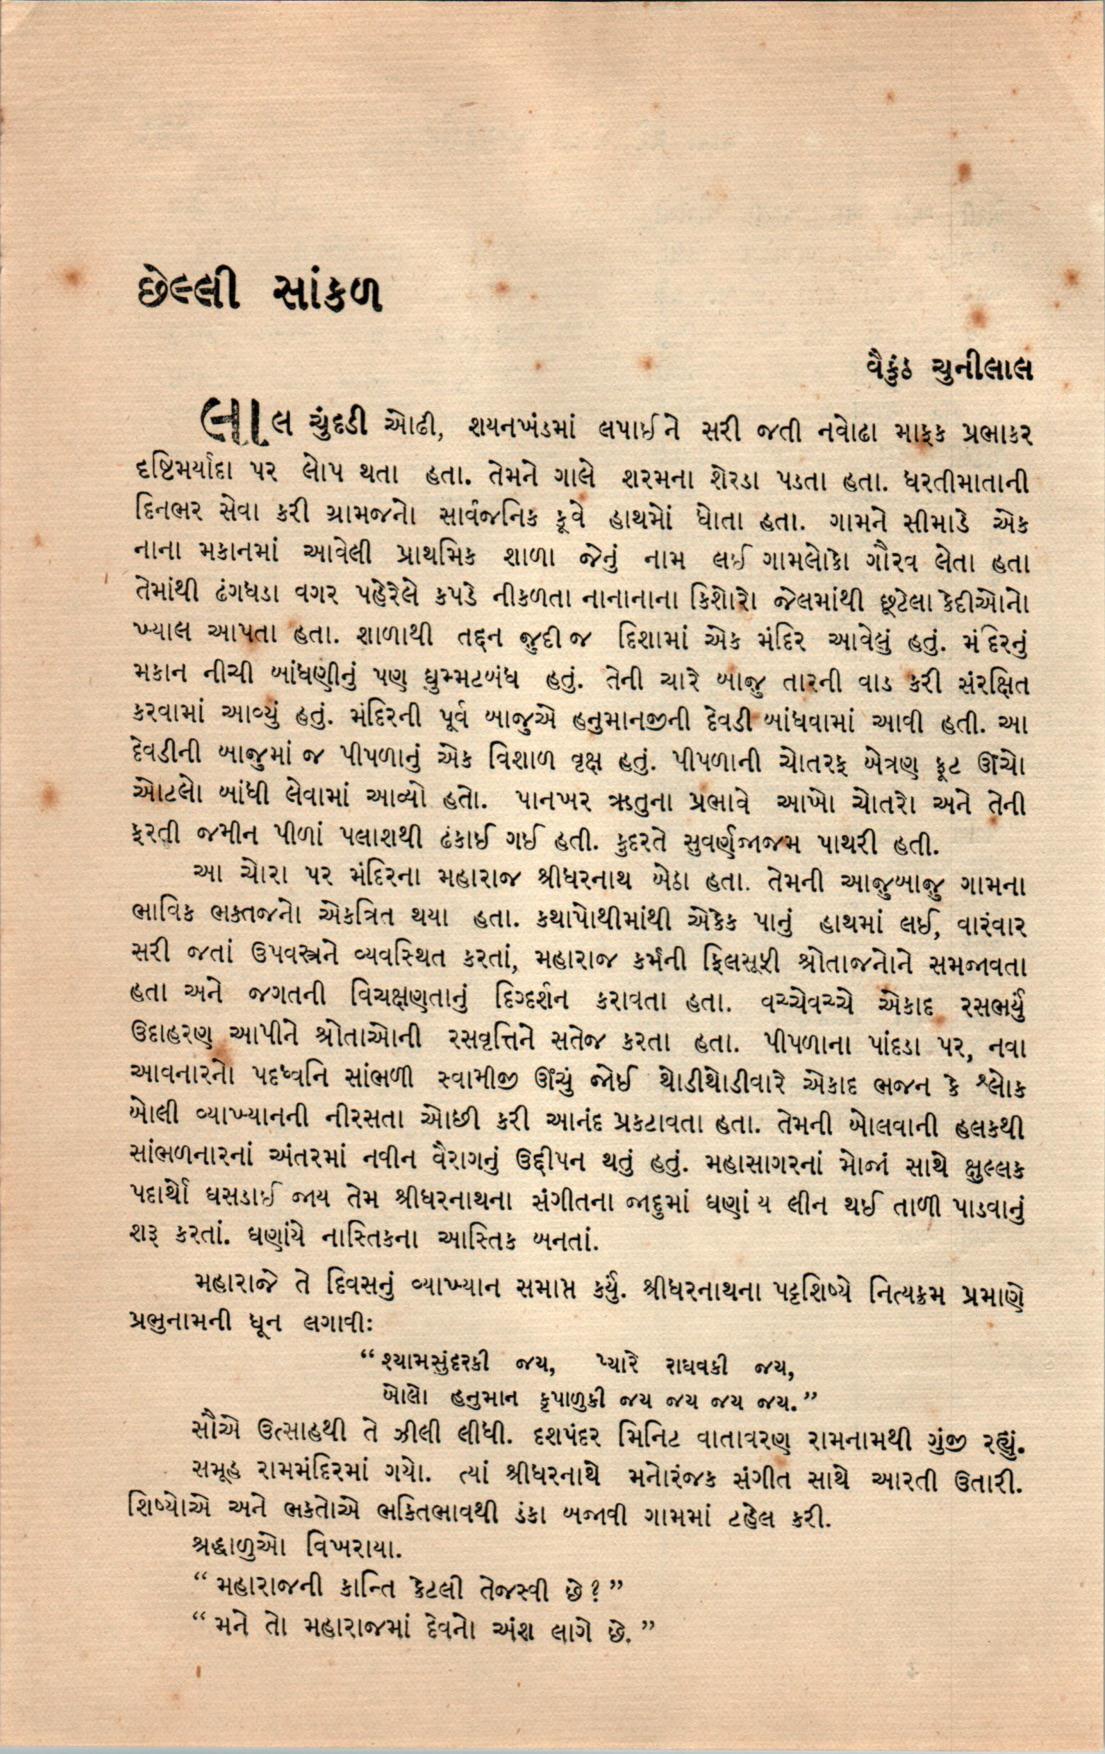 છેલ્લી સાંકળ
વૈકુંઠ ચુનીલાલ
લાલ ચુંદડી ઓઢી, શયનખંડમાં લપાઈને સરી જતી નવોઢા માફક પ્રભાકર
દૃષ્ટિમર્યાદા પર લોપ થતા હતા. તેમને ગાલે શરમના શેરડા પડતા હતા. ધરતીમાતાની
દિનભર સેવા કરી ગ્રામજનો સાર્વજનિક કૂવે હાથમોં ધોતા હતા. ગામને સીમાડે એક
નાના મકાનમાં આવેલી પ્રાથમિક શાળા જેનું નામ લઈ ગામલોકો ગૌરવ લેતા હતા
તેમાંથી ઢંગધડા વગર પહેરેલે કપડે નીકળતા નાનાનાના કિશોરો જેલમાંથી છૂટેલા કેદીઓનો
ખ્યાલ આપતા હતા. શાળાથી તદ્દન જુદી જ દિશામાં એક મંદિર આવેલું હતું. મંદિરનું
મકાન નીચી બાંધણીનું પણ ઘુમ્મટબંધ હતું. તેની ચારે બાજુ તારની વાડ કરી સંરક્ષિત
કરવામાં આવ્યું હતું. મંદિરની પૂર્વ બાજુએ હનુમાનજીની દેવડી બાંધવામાં આવી હતી. આ
દેવડીની બાજુમાં જ પીપળાનું એક વિશાળ વૃક્ષ હતું. પીપળાની ચોતરફ બેત્રણ ફૂટ ઊંચો
ઓટલો બાંધી લેવામાં આવ્યો હતો. પાનખર ઋતુના પ્રભાવે આખો ચોતરો અને તેની
ફરતી જમીન પીળાં પલાશથી ઢંકાઈ ગઈ હતી. કુદરતે સુવર્ણજાજમ પાથરી હતી.
આ ચોરા પર મંદિરના મહારાજ શ્રીધરનાથ બેઠા હતા. તેમની આજુબાજુ ગામના
ભાવિક ભક્તજનો એકત્રિત થયા હતા. કથાપોથીમાંથી એકેક પાનું હાથમાં લઈ, વારંવાર
સરી જતાં ઉપવસ્ત્રને વ્યવસ્થિત કરતાં, મહારાજ કર્મની ફિલસૂફી શ્રોતાજનોને સમજાવતા
હતા અને જગતની વિચક્ષણતાનું દિગ્દર્શન કરાવતા હતા. વચ્ચેવચ્ચે એકાદ રસભર્યું
ઉદાહરણ આપીને શ્રોતાઓની રસવૃત્તિને સતેજ કરતા હતા. પીપળાના પાંદડા પર, નવા
આવનારનો પદધ્વનિ સાંભળી સ્વામીજી ઊંચું જોઈ થોડીથોડીવારે એકાદ ભજન કે શ્લોક
બોલી વ્યાખ્યાનની નીરસતા ઓછી કરી આનંદ પ્રકટાવતા હતા. તેમની બોલવાની હલકથી
સાંભળનારનાં અંતરમાં નવીન વૈરાગનું ઉદ્દીપન થતું હતું. મહાસાગરનાં મોજાં સાથે ક્ષુલ્લક
પદાર્થો ઘસડાઈ જાય તેમ શ્રીધરનાથના સંગીતના જાદુમાં ઘણાંય લીન થઈ તાળી પાડવાનું
શરૂ કરતાં. ઘણાંયે નાસ્તિકના આસ્તિક બનતાં.
મહારાજે તે દિવસનું વ્યાખ્યાન સમાપ્ત કર્યું. શ્રીધરનાથના પટ્ટશિષ્યે નિત્યક્રમ પ્રમાણે
પ્રભુનામની ધૂન લગાવી:
“શ્યામસુંદરકી જય, પ્યારે રાઘવકી જય,
બોલો હનુમાન કૃપાળુકી જય જય જય જય.”
સૌએ ઉત્સાહથી તે ઝીલી લીધી. દશપંદર મિનિટ વાતાવરણ રામનામથી ગુંજી રહ્યું.
સમૂહ રામમંદિરમાં ગયો. ત્યાં શ્રીધરનાથે મનોરંજક સંગીત સાથે આરતી ઉતારી.
શિષ્યોએ અને ભકતોએ ભક્તિભાવથી ડંકા બજાવી ગામમાં ટહેલ કરી.
શ્રદ્ધાળુઓ વિખરાયા.
“મહારાજની કાન્તિ કેટલી તેજસ્વી છે?”
“મને તો મહારાજમાં દેવનો અંશ લાગે છે.”